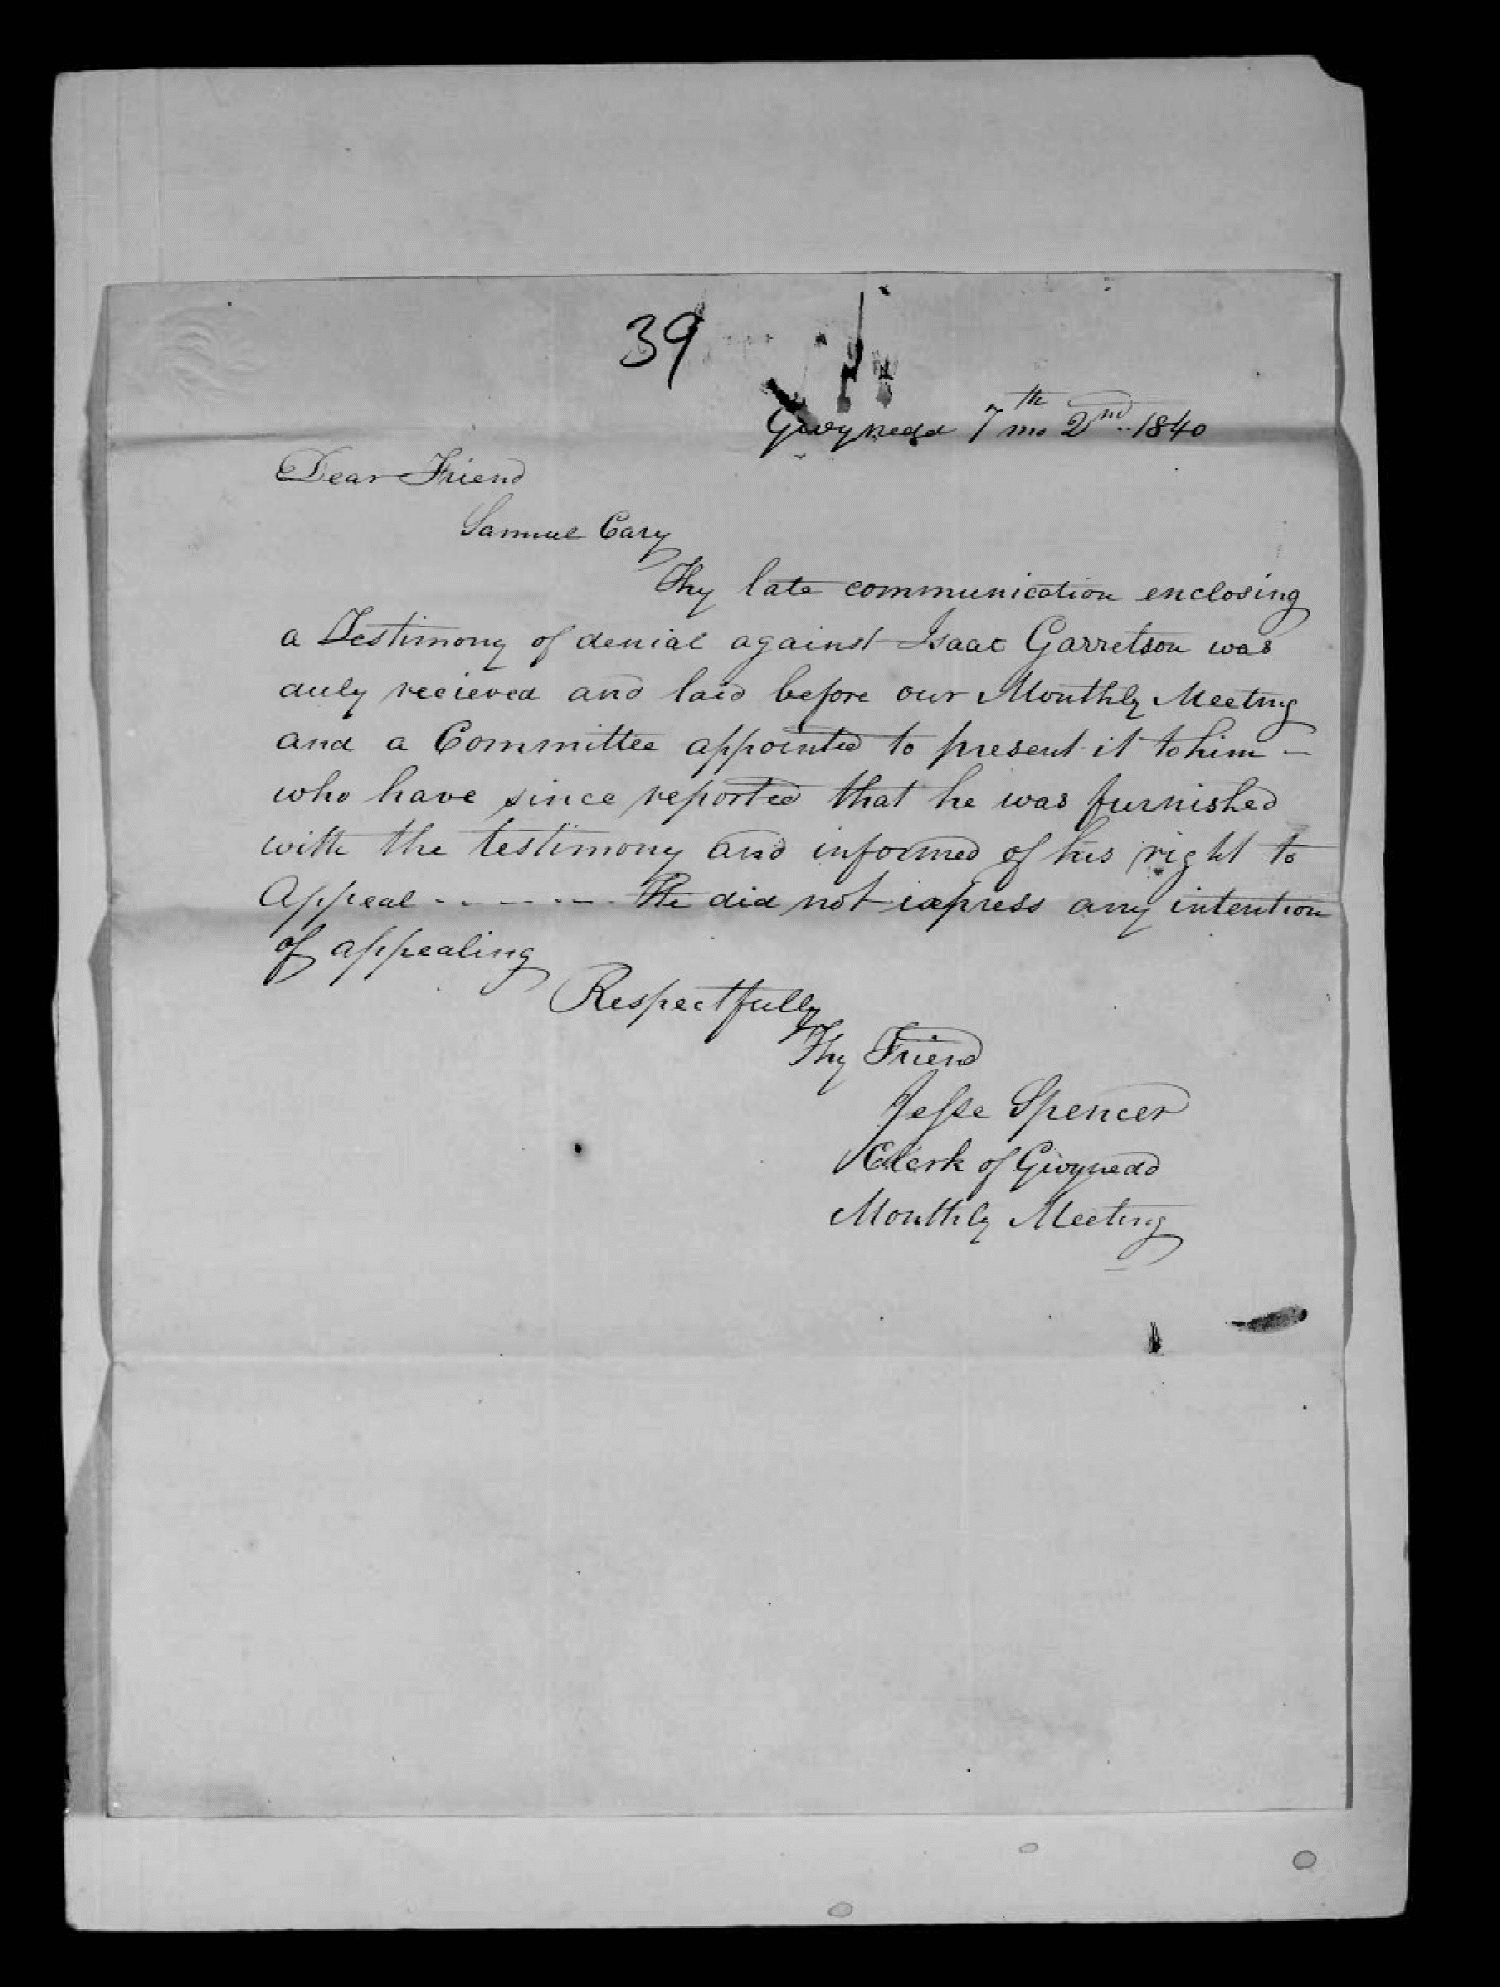 39
Gwynedd 7th mo 2nd 1840
Dear Friend
Samuel Cary
Thy late communication enclosing
a Testimony of denial against Isaac Garretson was
duly recieved and laid before our Monthly Meeting
and a Committee appointed to present it to him –
who have since reported that he was furnished
with the testimony and informed of his right to
Appeal - - - - - - He did not express any intention
of appealing
Respectfully
Thy Friend
Jesse Spencer
Clerk of Gwynedd
Monthly Meeting